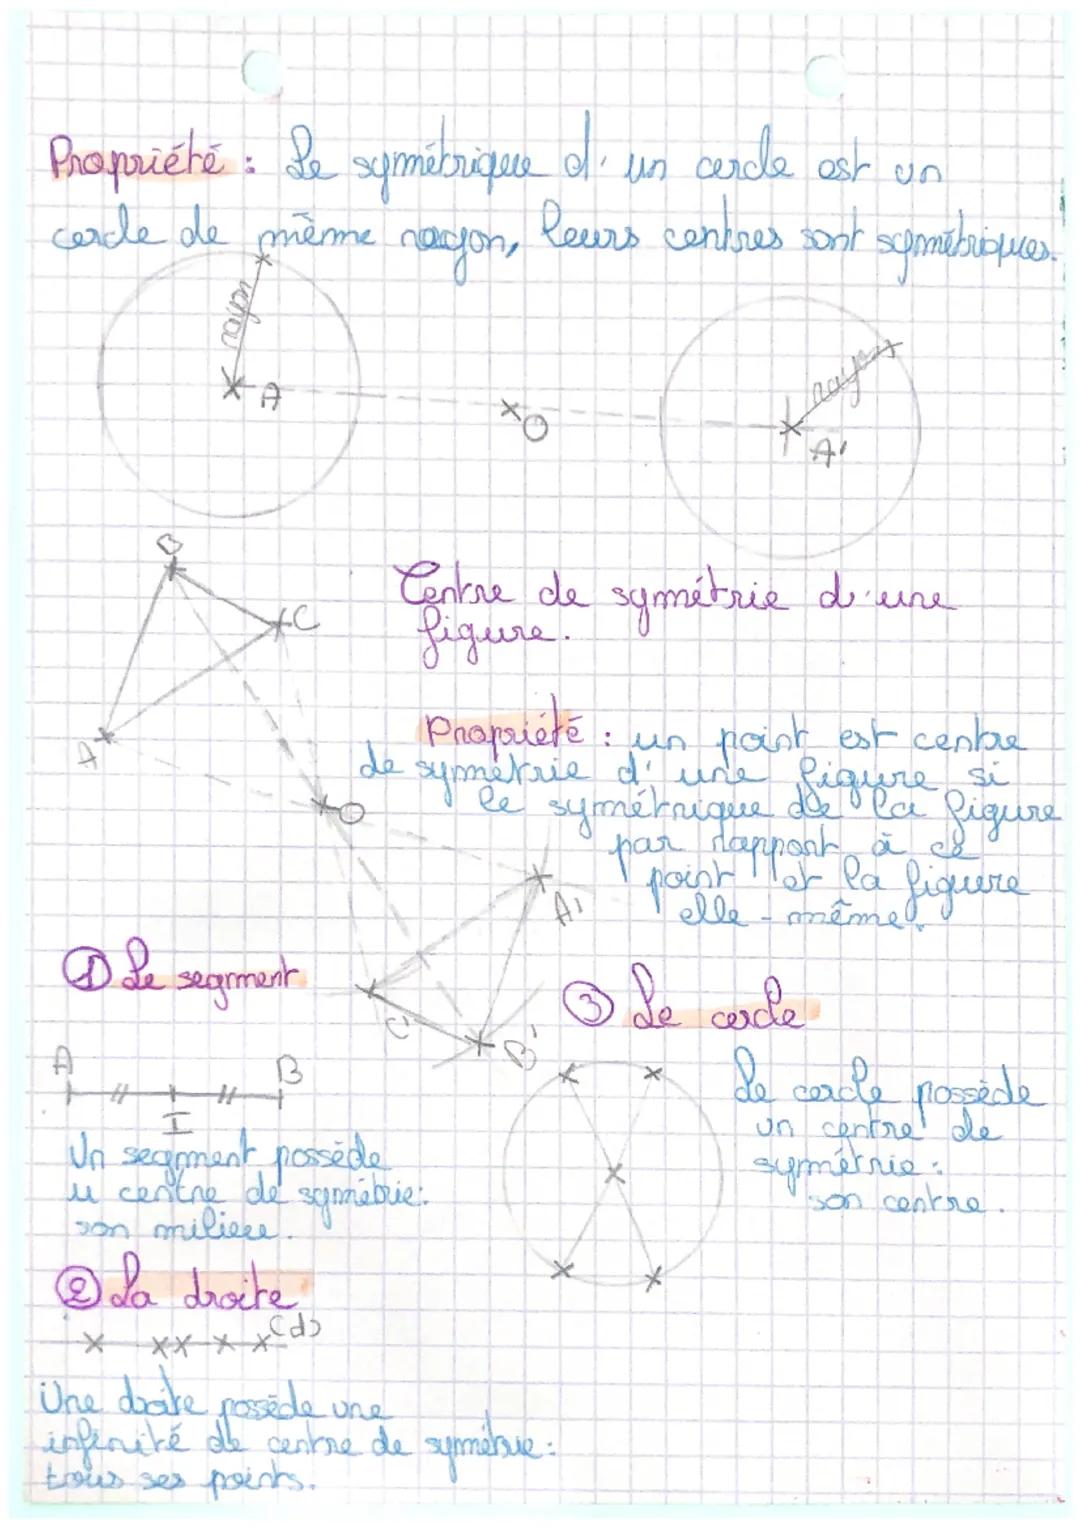 Propriété : Le symétrique d'un cercle est un
cercle de même rayon, leurs centres sont symétriques.
rayon
A
O
rayon
A'
B
C
A
O
A'
C'
B'
Centre de symétrie d'une
figure.
Propriété : un point est centre
de symétrie d'une figure si
le symétrique de la figure
par rapport à ce
point et la figure
elle-même.
① Le segment
A B
I
Un segment possède
u centre de symétrie:
son milieu.
② La droite
(d)
Une droite possède une
infinité de centre de symétrie:
tous ses points.
③ Le cercle
Le cercle possède
un centre de
symétrie :
son centre.